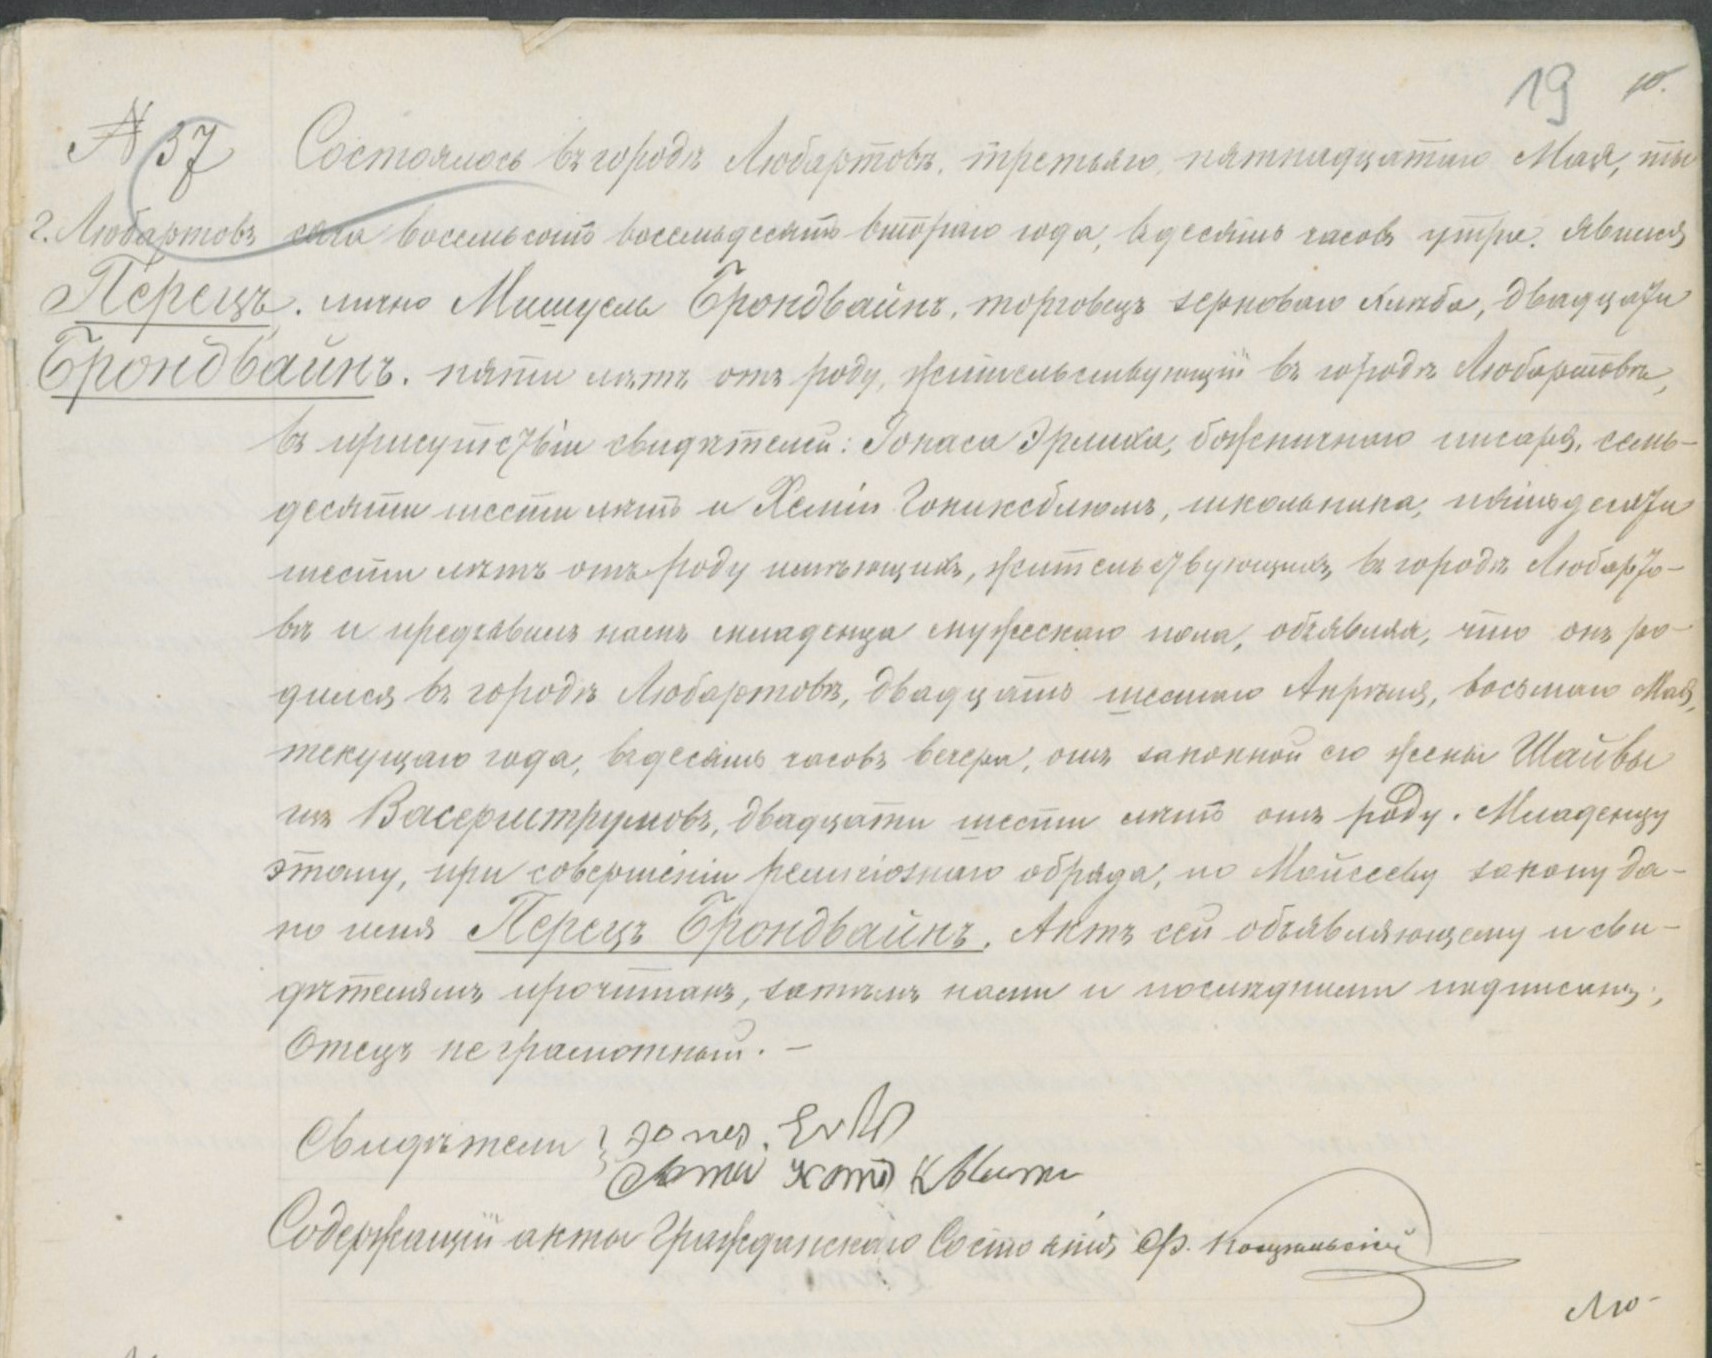 19
№ 37 Состоялось въ городѣ Любартовѣ, третьяго, пятнадцатаго Мая, ты
г. Любартовъ сяча восемьсотъ восемьдесятъ втораго года, въ десять часовъ утра. Явился
Перецъ. лично Мишуель Брондвайнъ, торговецъ зерноваго хлѣба, двадцати
Брондвайнъ. пяти лѣтъ отъ роду, жительствующій въ городѣ Любартовѣ,
въ присутствіи свидѣтелей: Іонаса Эрлиха, божничнаго писаря, семь-
десяти шести лѣтъ и Хеміи Гониксблюмъ, школьника, пятьдесяти
шести лѣтъ отъ роду имѣющихъ, жительствующихъ въ городѣ Любарто-
вѣ и предъявилъ намъ младенца мужескаго пола, объявляя, что онъ ро-
дился въ городѣ Любартовѣ, двадцать шестаго Апрѣля, восьмаго Мая,
текущаго года, въ десять часовъ вечера, отъ законной его жены Шайвы
изъ Васерштрумовъ, двадцати шести лѣтъ отъ роду. Младенцу
этому, при совершеніи религіознаго обряда, по Мойсееву закону да-
но имя Перецъ Брондвайнъ. Актъ сей объявляющему и сви-
дѣтелямъ прочитанъ, затѣмъ нами и послѣдними подписанъ;
Отецъ не грамотный. —
Свидѣтели
Содержащій акты Гражданскаго Состоянія Ф.
Лю-